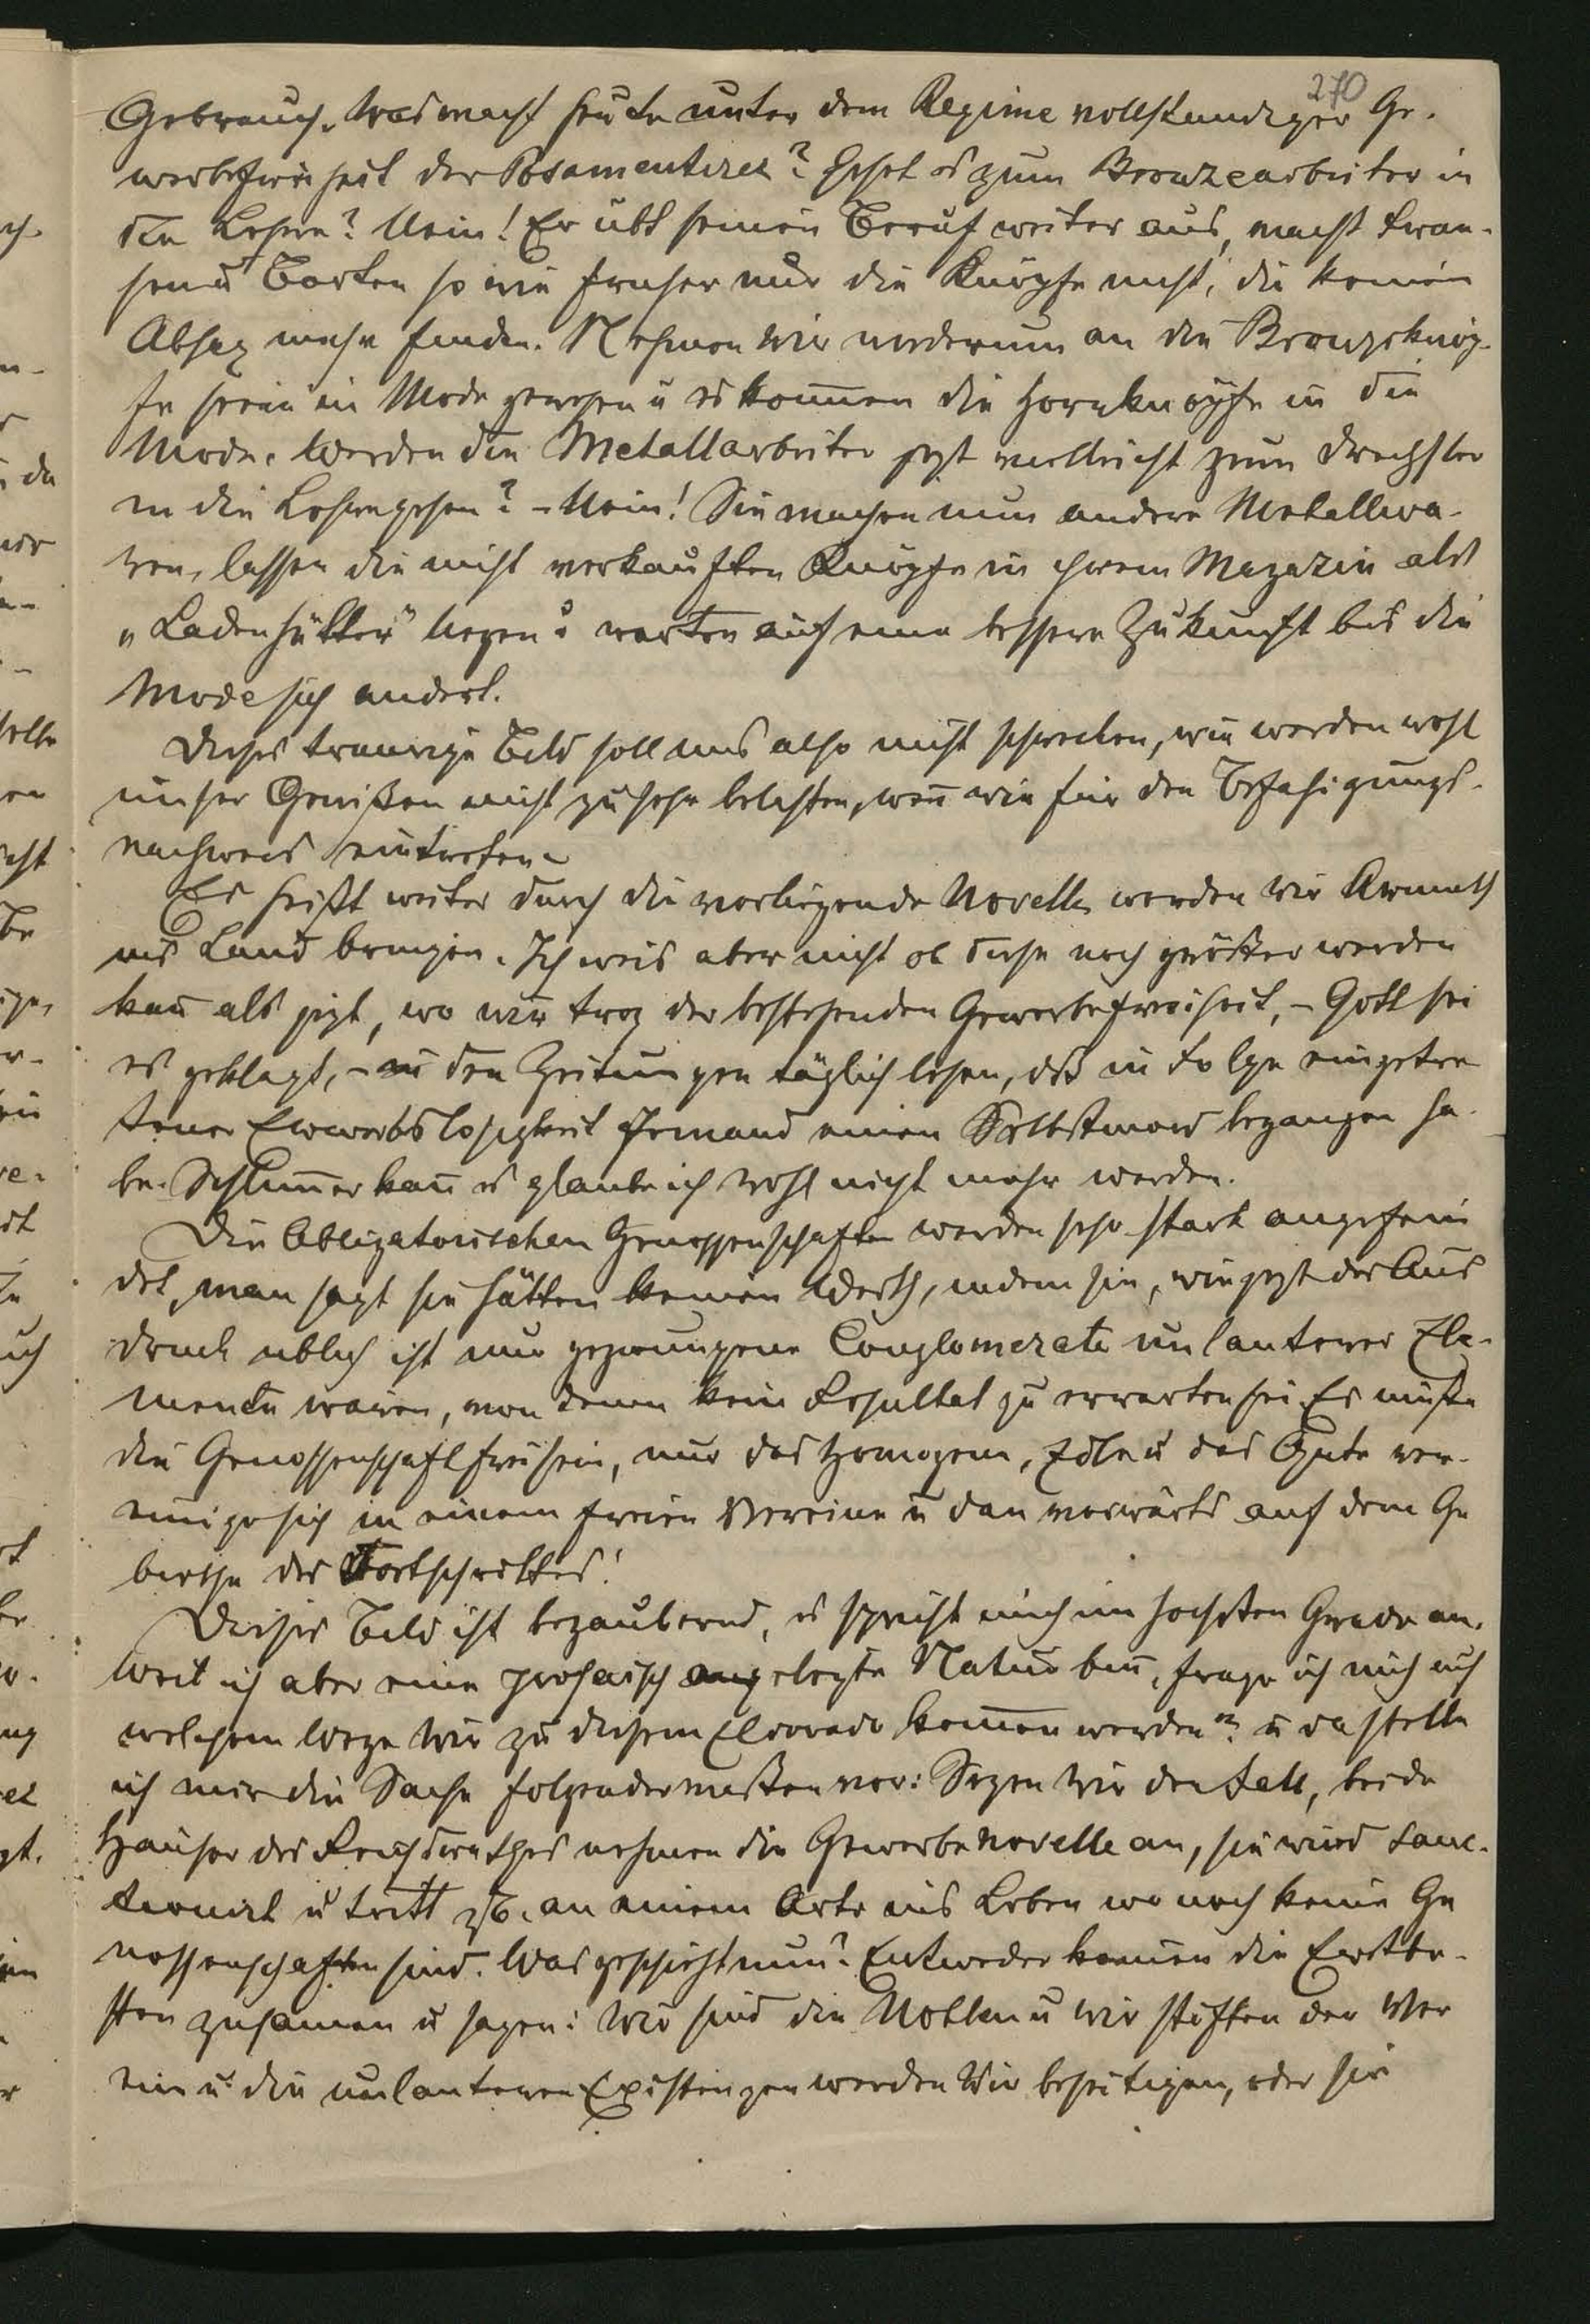 270
Gebrauch. Was macht heute unter dem Regime vollständiger Ge-
werbefreiheit der Posamentirer? Gehet er zum Bronzearbeiter in
die Lehre? Nein! Er übt seinen Beruf weiter aus, macht Fran-
sen u Borten so wie früher nur die Knöpfe nicht, die keinen
Absaz mehr finden. Nehmen wir wiederum an die Bronzeknöp-
fe seien in Mode gewesen u es kom̄en die Hornknöpfe in die
Mode. Werden die Metallarbeiter jezt vielleicht zum Drechsler
in die Lehre gehen? – Nein! Sie machen nun andere Metallwa-
ren, lassen die nicht verkauften Knöpfe in ihrem Magazin als
„Ladenhütter" liegen u warten auf eine bessere Zukunft bis die
Mode sich andert.
Dieses traurige Bild soll uns also nicht schrecken, wir werden wohl
unser Gewißen nicht zu sehr belasten, wen̄ wir für den Befähigungs-
nachweis eintreten.
Es heißt weiter durch die vorliegende Novelle werden wir Armuth
ins Land bringen. Ich weis aber nicht ob diese noch größer werden
kan̄ als jezt, wo wir troz der bestehenden Gewerbefreiheit, – Gott sei
es geklagt, – in den Zeitungen täglich lesen, daß in Folge eingetre
tener Erwerbslosigkeit Jemand einen Selbstmord begangen ha-
be. Schlim̄er kan̄ es glaube ich wohl nicht mehr werden.
Die Obligatorischen Genossenschaften werden sehr stark angefein
det, man sagt sie hätten keinen Werth, indem sie, wie jezt der Aus
druck üblich ist nur gezwungene Conglomerate unlauterer Ele-
mente wären, von denen kein Resultat zu erwarten sei. Es müße
die Genossenschaft frei sein, nur das Homogene, Edle u das Gute ver-
einige sich in einem freien Vereine u dan vorwärts auf dem Ge
biethe des Fortschrittes!
Dieses Bild ist bezaubernd, es spricht mich im hochsten Grade an.
Weil ich aber eine prosaisch angelegte Natur bin̄, frage ich mich auf
welchem Wege wir zu diesem Eldorado kom̄en werden? u da stelle
ich mir die Sache folgendermaßen vor: Sezen wir den Fall, beide
Häuser des Reichsrathes nehmen die Gewerbenovelle an, sie wird sanc-
tionirt u tritt zB. an einem Orte ins Leben wo noch keine Ge
nossenschaften sind. Was geschieht nun? Entweder kom̄en die Erstbe-
sten zusamen u sagen: Wir sind die Noblen u wir stiften den Ver
ein u die unlauteren Existenzen werden wir beseitigen, oder sie